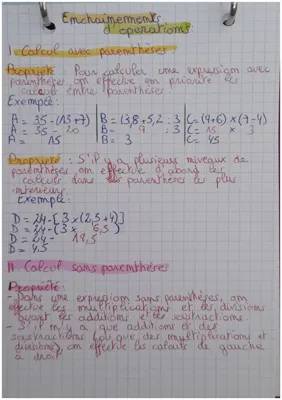 Enchaînements
d'opérations
I Calcul avec parenthèses
Propriété : Pour calculer une expression avec
parenthèses, on effectue en priorité les
calculs entre parenthèses
Exemple :
A = 35 - (13 + 7) B = (3,8 + 5,2) : 3 C = (9+6) × (7-4)
A = 35 - 20 B = 9 : 3 C = 15 × 3
A = 15 B = 3 C = 45
Propriété : S'il y a plusieurs niveaux de
parenthèses, on effectue d'abord les
calculs dans les parenthèses les plus
intérieurs.
Exemple :
D = 24 - [3 × (2,5 + 4)]
D = 24 - (3 × 6,5)
D = 24 - 19,5
D = 4,5
II Calcul sans parenthèse
Propriété :
- Dans une expression sans parenthères, on
effectue les multiplications et les divisions
avant les additions et les soustractions
- S'il n'y a que additions et des
soustractions (ou que des multiplications et
divisions), on effectue les calculs de gauche
à droite